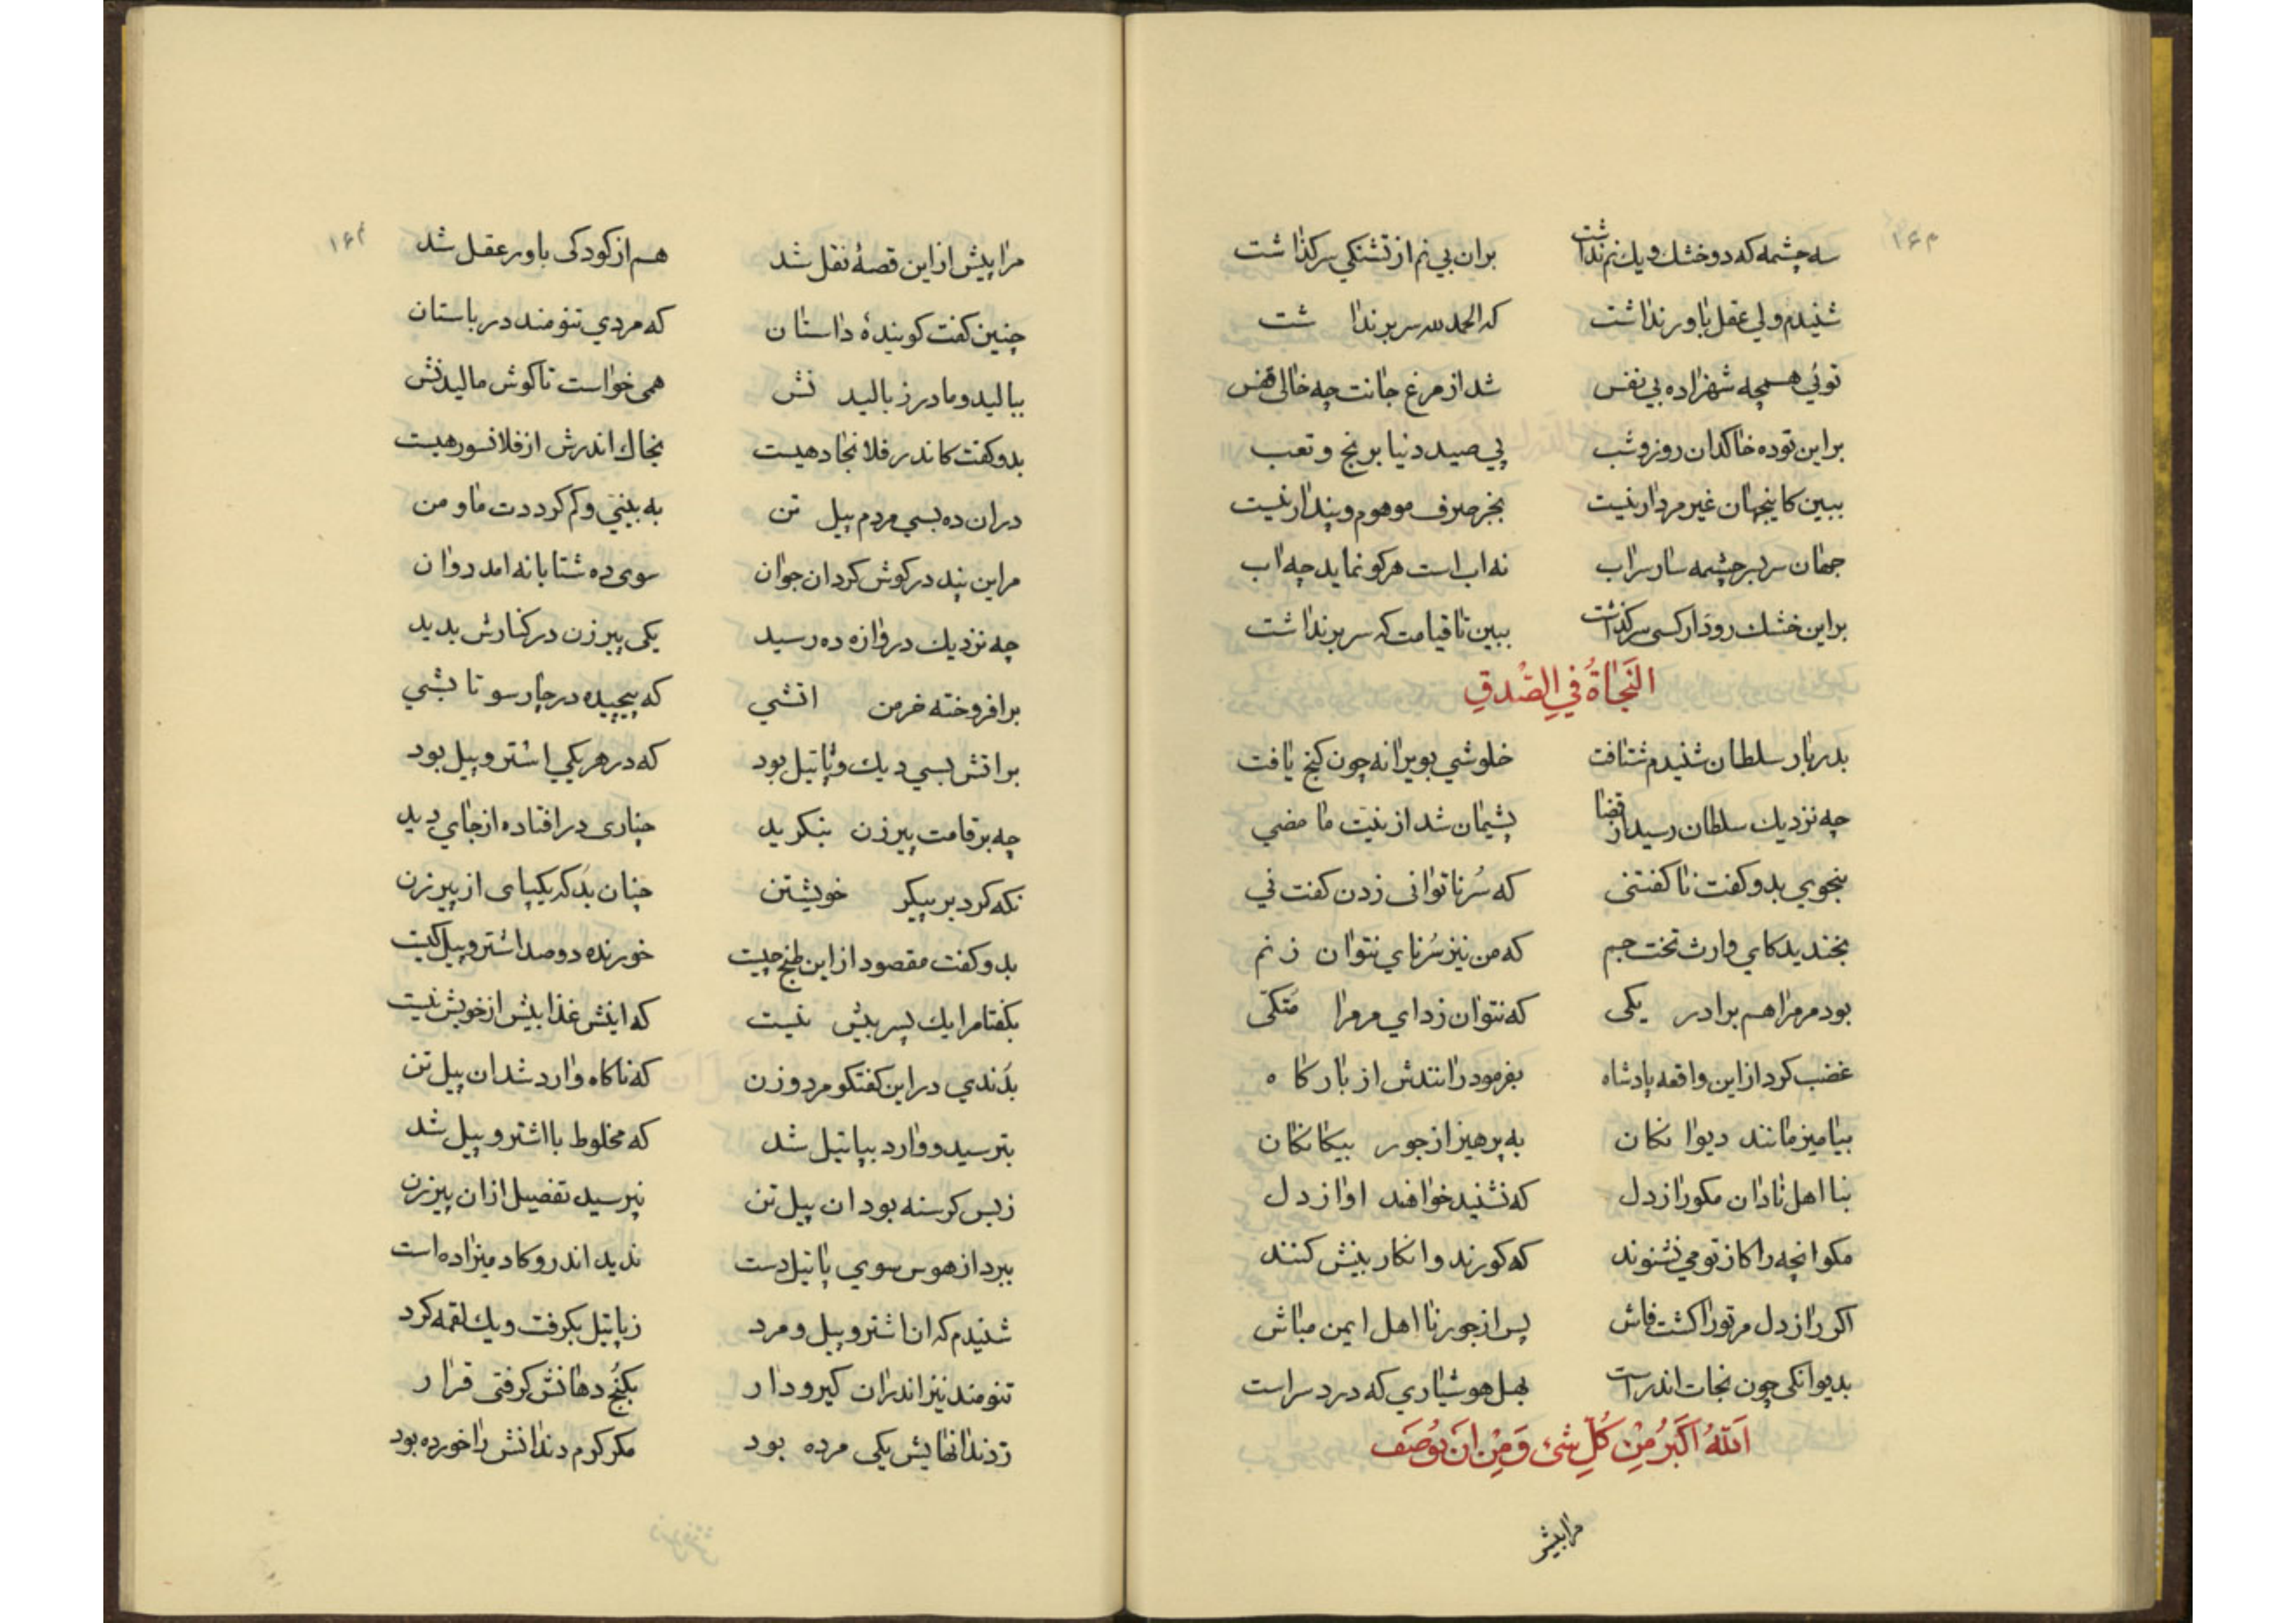 سه چشمه که دو خشك و يك نم نداشت بران بي نم از تشنکي سر کذاشت
شنيدم ولي عقل باور نداشت که الحمد لله سر بر نداشت
توئي همچه شهزاده بي نفس شد از مرغ جانت چه خالی قفس
بر اين توده خاکدان روز و شب پي صيد دنيا برنج و تعب
ببين کاينجهان غير مردار نيست بجز صرف موهوم و پندار نيست
جهان سربسر چشمه سار سراب نه اب است هر کو نمايد چه اب
بر اين خشك رود ار کسی سر کذاشت ببين تا قيامت که سر بر نداشت
اَلنَّجٰاةُ فِي الصِّدْقِ
بدربار سلطان شنيدم شتافت خلوشي بويرانه چون کنج يافت
چه نزديك سلطان رسيد از قضا پشيمان شد از نيت ما مضي
بنجوي بدو کفت ناکفتنی که سُرنا توانی زدن کفت ني
بخنديد کاي وارث تخت جم که من نيز سُرناي نتوان زنم
بود مر مرا هم برادر يکی که نتوان زد اي مر مرا مُتکّی
غضب کرد از اين واقعه پادشاه بفرمود رانندش از بارکاه
بياميز مانند ديوانکان به پرهيز از جور بيکانکان
بنا اهل نادان مکو راز دل که نشنيد خواهند اواز دل
مکو انچه را کاز تو مي نشنوند که کورند و انکار بينش کنند
اکر راز دل مر تو را کشت فاش پس از جور نا اهل ايمن مباش
بديوانکی چون نجات اندر است بهل هوشياري که درد سر است
اَللهُ اَکبَرُ مِنْ کُلِّ شیء وَ مِنْ اَنْ يُوصَف
مرا پيش
مرا پيش از اين قصهٔ نقل شد هم از کودکی باور عقل شد
چنين کفت کويندهٔ داستان که مردي تنومند در باستان
بباليد و مادر ز باليدنش همی خواست تا کوش ماليدنش
بدو کفت کاندر فلانجا دهيست بخاك اندرش از فلان سور هيست
در ان ده بسي مردم پيل تن به بيني و کم کرددت ما و من
مر اين پند در کوش کرد ان جوان سوی ده شتابانه امد دوان
چه نزديك دروازه ده رسيد يکی پير زن در کنارش بديد
بر افروخته خرمن اتشي که پيچيده در چار سو تابشي
بر اتش بسي ديك و پاتيل بود که در هر يکي اشتر و پيل بود
چه بر قامت پير زن بنکريد چناری در افتاده از جاي ديد
نکه کرد بر پيکر خويشتن چنان بُد که يکپای از پير زن
بدو کفت مقصود از اين طبخ چيست خورنده دو صد اشتر و پيل کيست
بکفتا مرا يك پسر بيش نيست که اينش غذا بيش از خويش نيست
بُدندي در اين کفتکو مرد و زن که ناکاه وارد شد ان پيل تن
بترسيد و وارد بپاتيل شد که مخلوط با اشتر و پيل شد
ز بس کرسنه بود ان پيل تن نپرسيد تفضيل از ان پير زن
ببرد از هوس سوي پاتيل دست نديد اندرو کادميزاده است
شنيدم که ان اشتر و پيل و مرد ز پاتيل بکرفت و يك لقمه کرد
تنومند نيز اندران کير و دار بکُنج دهانش کرفتی قرار
ز دندانهايش يکی مرده بود مکر کرم دندانش را خورده بود